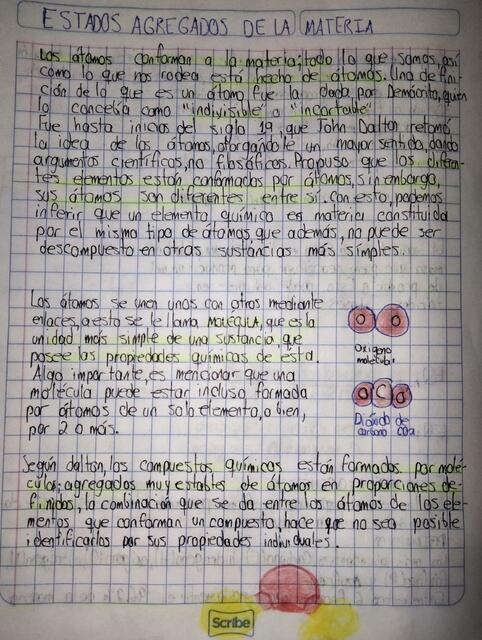 ESTADOS AGREGADOS DE LA MATERIA
Los átomos conforman a la materia; todo lo que somos, así
como lo que nos rodea está hecho de átomos. Una defini-
ción de lo que es un átomo fue la dada por Demócrito, quien
lo concebía como "indivisible" o "incortable"
Fue hasta inicios del siglo 19, que John Dalton retomó
la idea de los átomos, otorgandole un mayor sentido, dando
argumentos científicos, no filosóficos. Propuso que los diferen-
tes elementos están conformados por átomos, sin embargo,
sus átomos son diferentes entre sí. Con esto, podemos
inferir que un elemento químico es materia constituida
por el mismo tipo de átomos, que además, no puede ser
descompuesto en otras sustancias más simples.
Los átomos se unen unos con otros mediante
enlaces, a esto se le llama MOLÉCULA, que es la
unidad más simple de una sustancia, que
posee las propiedades químicas de ésta.
Algo importante, es mencionar que una
molécula puede estar incluso formada
por átomos de un solo elemento, o bien,
por 2 o más.
O O
Oxígeno
molecular
O C O
Dióxido de
carbono CO2
Según dalton, los compuestos químicos están formados por molé-
culas; agregados muy estables de átomos en proporciones de-
finidas, la combinación que se da entre los átomos de los ele-
mentos que conforman un compuesto, hace que no sea posible
identificarlos por sus propiedades individuales.
Scribe